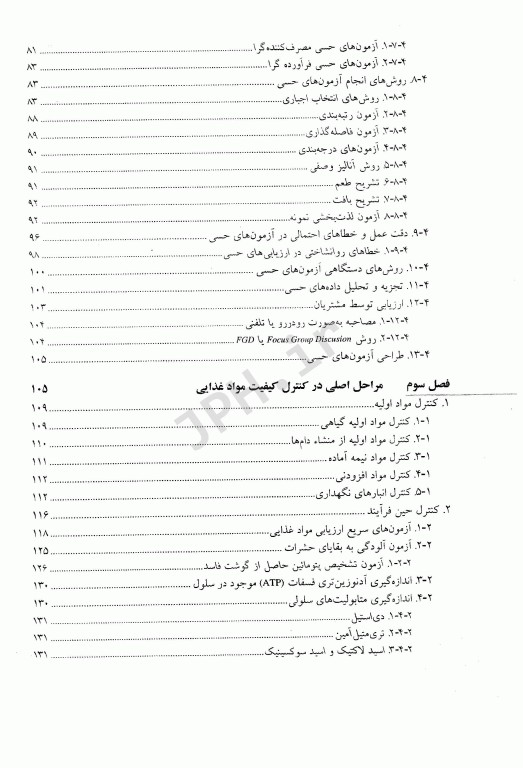 ۴-۷-۱. آزمون‌های حسی مصرف‌کننده‌گرا ۸۱
۴-۷-۲. آزمون‌های حسی فرآورده گرا ۸۳
۴-۸. روش‌های انجام آزمون‌های حسی ۸۳
۴-۸-۱. روش‌های انتخاب اجباری ۸۳
۴-۸-۲. آزمون رتبه‌بندی ۸۸
۴-۸-۳. آزمون فاصله‌گذاری ۸۹
۴-۸-۴. آزمون‌های درجه‌بندی ۹۰
۴-۸-۵. روش آنالیز وصفی ۹۱
۴-۸-۶. تشریح طعم ۹۱
۴-۸-۷. تشریح بافت ۹۲
۴-۸-۸. آزمون لذت‌بخشی نمونه ۹۲
۴-۹. دقت عمل و خطاهای احتمالی در آزمون‌های حسی ۹۶
۴-۹-۱. خطاهای روانشناختی در ارزیابی‌های حسی ۹۸
۴-۱۰. روش‌های دستگاهی آزمون‌های حسی ۱۰۰
۴-۱۱. تجزیه و تحلیل داده‌های حسی ۱۰۱
۴-۱۲. ارزیابی توسط مشتریان ۱۰۳
۴-۱۲-۱. مصاحبه به‌صورت رودررو یا تلفنی ۱۰۴
۴-۱۲-۲. روش Focus Group Discusion یا FGD ۱۰۴
۴-۱۳. طراحی آزمون‌های حسی ۱۰۵
فصل سوم مراحل اصلی در کنترل کیفیت مواد غذایی ۱۰۵
۱. کنترل مواد اولیه ۱۰۹
۱-۱. کنترل مواد اولیه گیاهی ۱۰۹
۱-۲. کنترل مواد اولیه از منشاء دام‌ها ۱۱۰
۱-۳. کنترل مواد نیمه آماده ۱۱۱
۱-۴. کنترل مواد افزودنی ۱۱۲
۱-۵. کنترل انبارهای نگهداری ۱۱۲
۲. کنترل حین فرآیند ۱۱۶
۲-۱. آزمون‌های سریع ارزیابی مواد غذایی ۱۱۸
۲-۲. آزمون آلودگی به بقایای حشرات ۱۲۵
۲-۲-۱. آزمون تشخیص پتومائین حاصل از گوشت فاسد ۱۲۶
۲-۳. اندازه‌گیری آدنوزین‌تری فسفات (ATP) موجود در سلول ۱۳۰
۲-۴. اندازه‌گیری متابولیت‌های سلولی ۱۳۰
۲-۴-۱. دی‌استیل ۱۳۱
۲-۴-۲. تری‌متیل‌آمین ۱۳۱
۲-۴-۳. اسید لاکتیک و اسید سوکسینیک ۱۳۱
JPH.ir